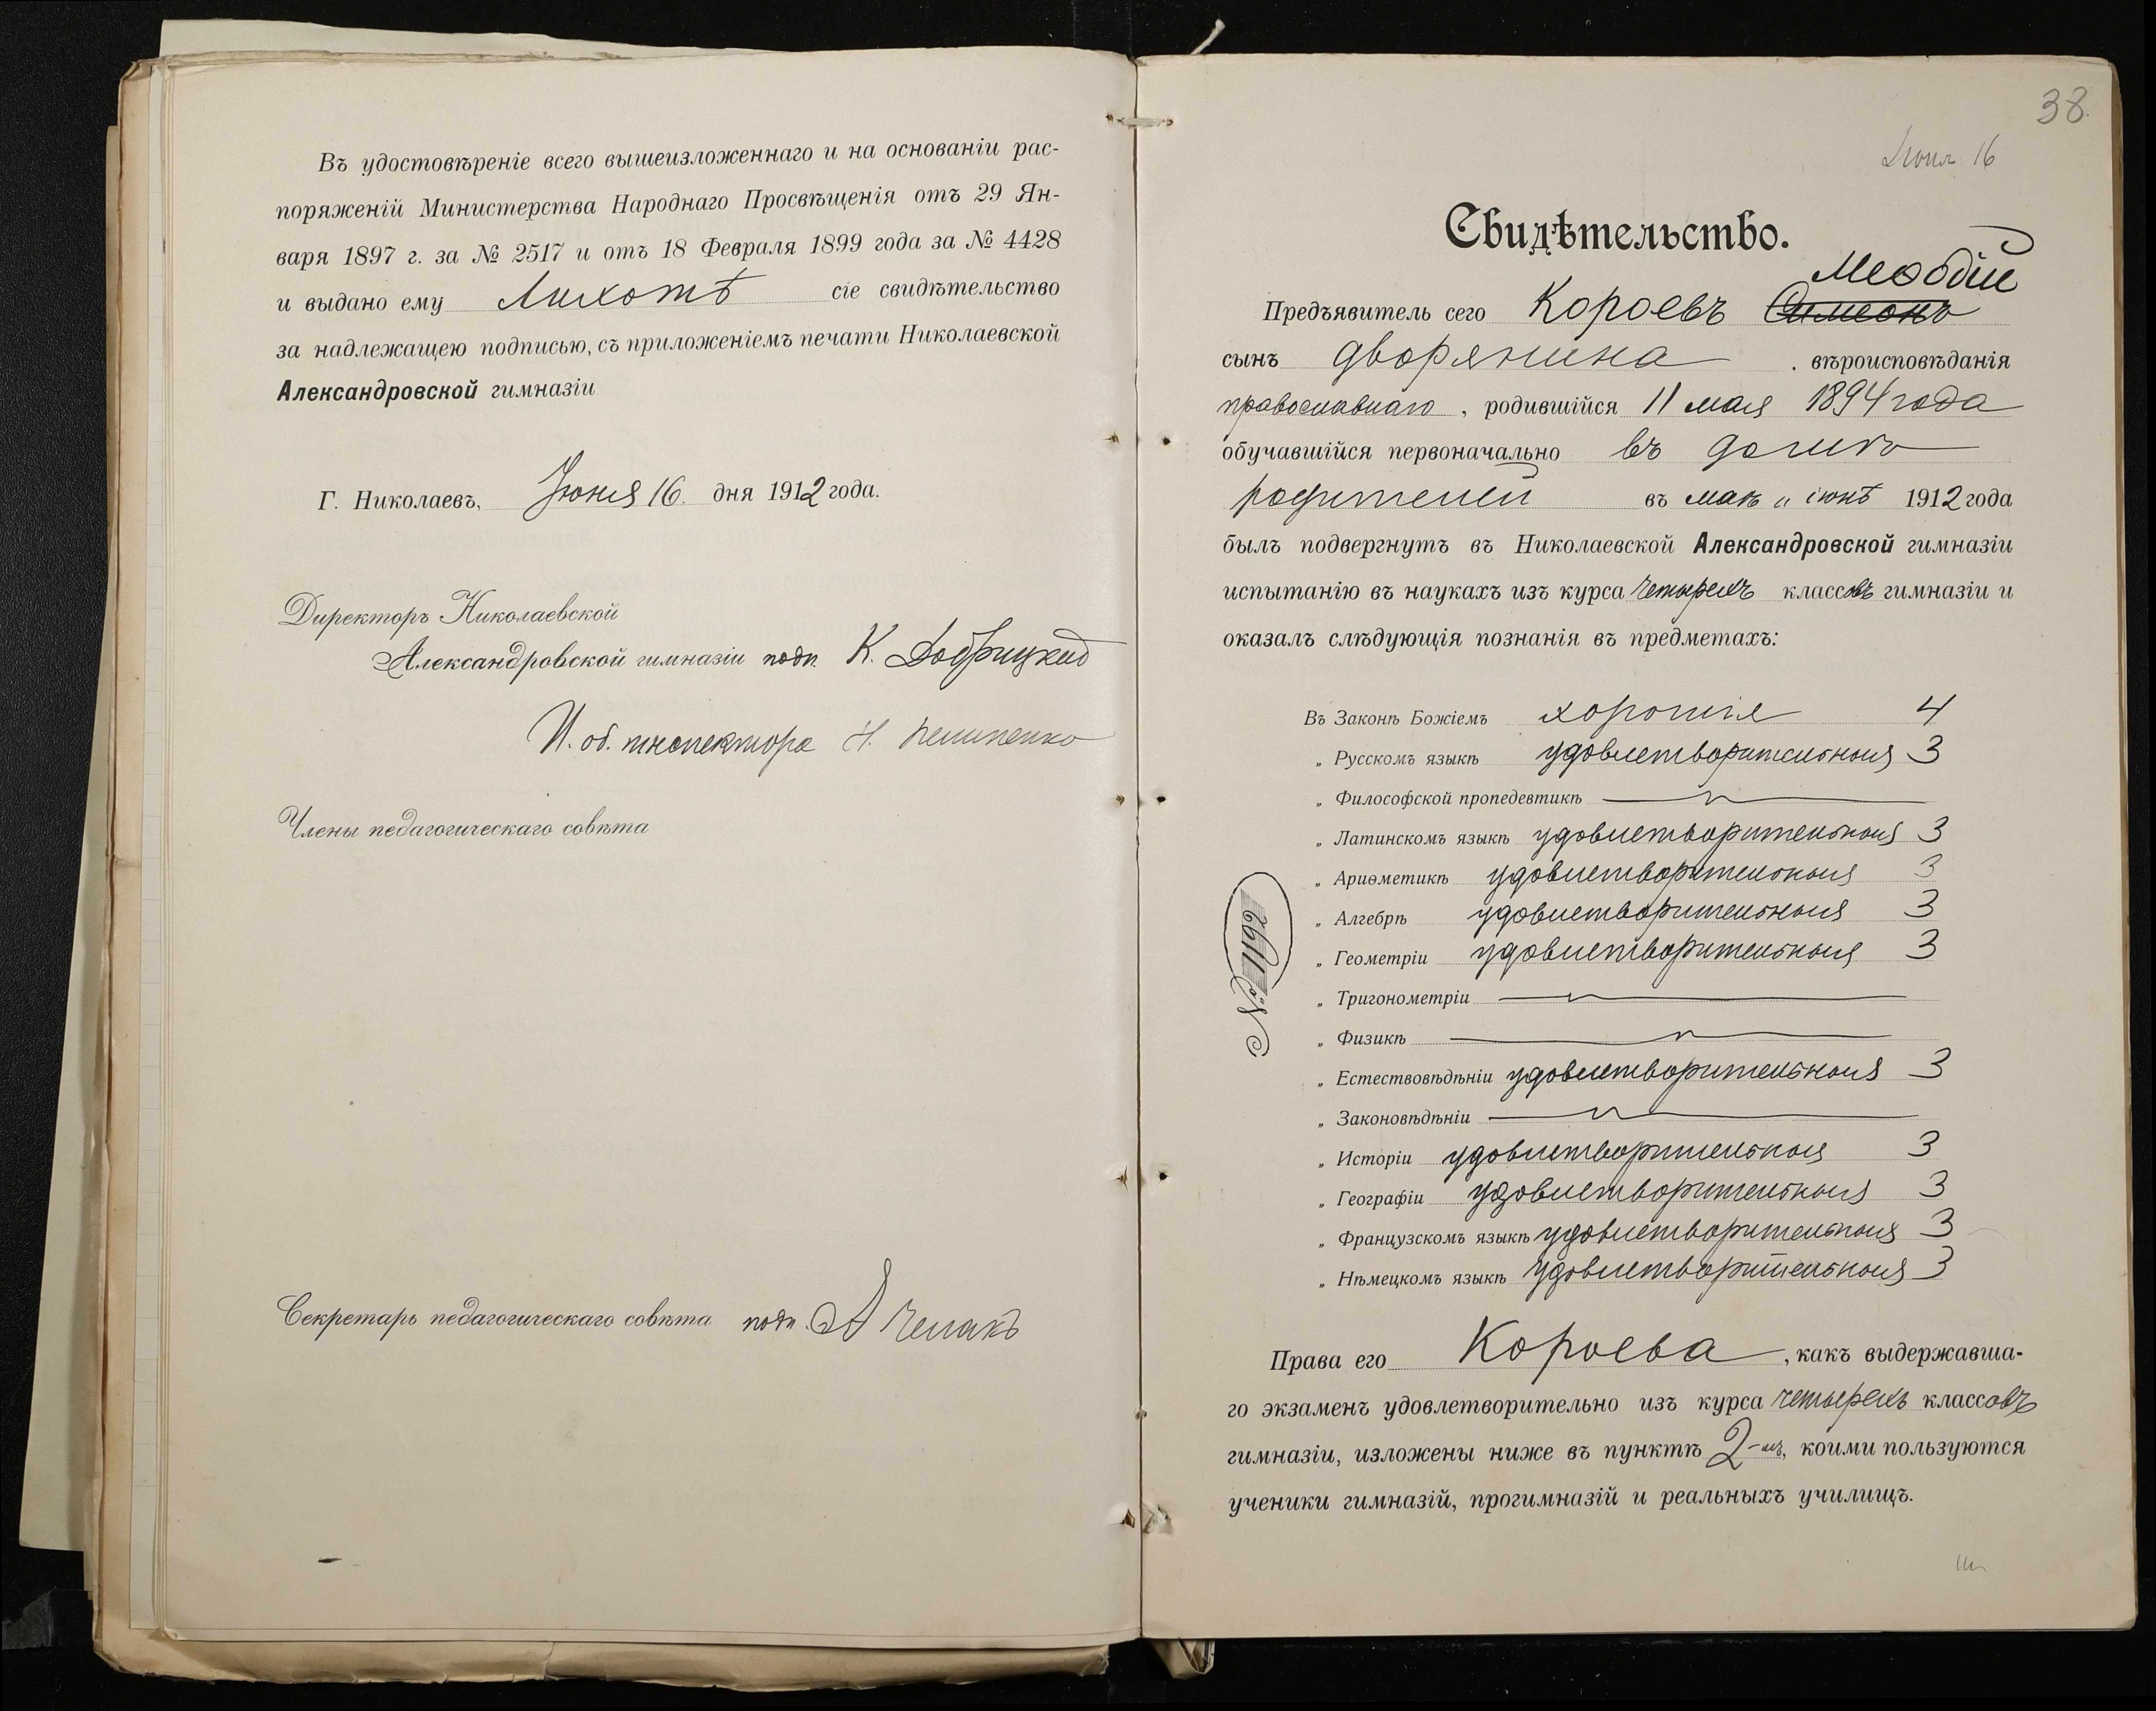 Въ удостовѣреніе всего вышеизложеннаго и на основаніи рас-
поряженій Министерства Народнаго Просвѣщенія отъ 29 Ян-
варя 1897 г. за № 2517 и отъ 18 Февраля 1899 года за № 4428
и выдано ему сіе свидѣтельство
за надлежащею подписью, съ приложеніемъ печати Николаевской
Александровской гимназіи
Г. Николаевъ, Іюня 16 дня 1912 года.
Директоръ Николаевской
Александровской гимназіи подп. К.
И. об. инспектора
Члены педагогическаго совѣта
Секретарь педагогическаго совѣта подп. А
38.
16
Свидѣтельство.
Меѳодій
Предъявитель сего Короевъ Симеонъ
сынъ дворянина . вѣроисповѣданія
православнаго, родившійся 11 мая 1894 года
обучавшійся первоначально въ домѣ
родителей въ маѣ и іюнѣ 1912 года
былъ подвергнутъ въ Николаевской Александровской гимназіи
испытанію въ наукахъ изъ курса четырехъ классовъ гимназіи и
оказалъ слѣдующія познанія въ предметахъ:
Въ Законѣ Божіемъ хорошія 4
„ Русскомъ языкѣ удовлетворительныя 3
„ Философской пропедевтикѣ
„ Латинскомъ языкѣ удовлетворительныя 3
„ Ариѳметикѣ удовлетворительныя 3
„ Алгебрѣ удовлетворительныя 3
„ Геометріи удовлетворительныя 3
„ Тригонометріи
„ Физикѣ
„ Естествовѣдѣніи удовлетворительныя 3
„ Законовѣдѣніи
„ Исторіи удовлетворительныя 3
„ Географіи удовлетворительныя 3
„ Французскомъ языкѣ удовлетворительныя 3
„ Нѣмецкомъ языкѣ удовлетворительныя 3
№ 1162
Права его Короева, какъ выдержавша-
го экзаменъ удовлетворительно изъ курса четырехъ классовъ
гимназіи, изложены ниже въ пунктѣ 2-мъ, коими пользуются
ученики гимназій, прогимназій и реальныхъ училищъ.